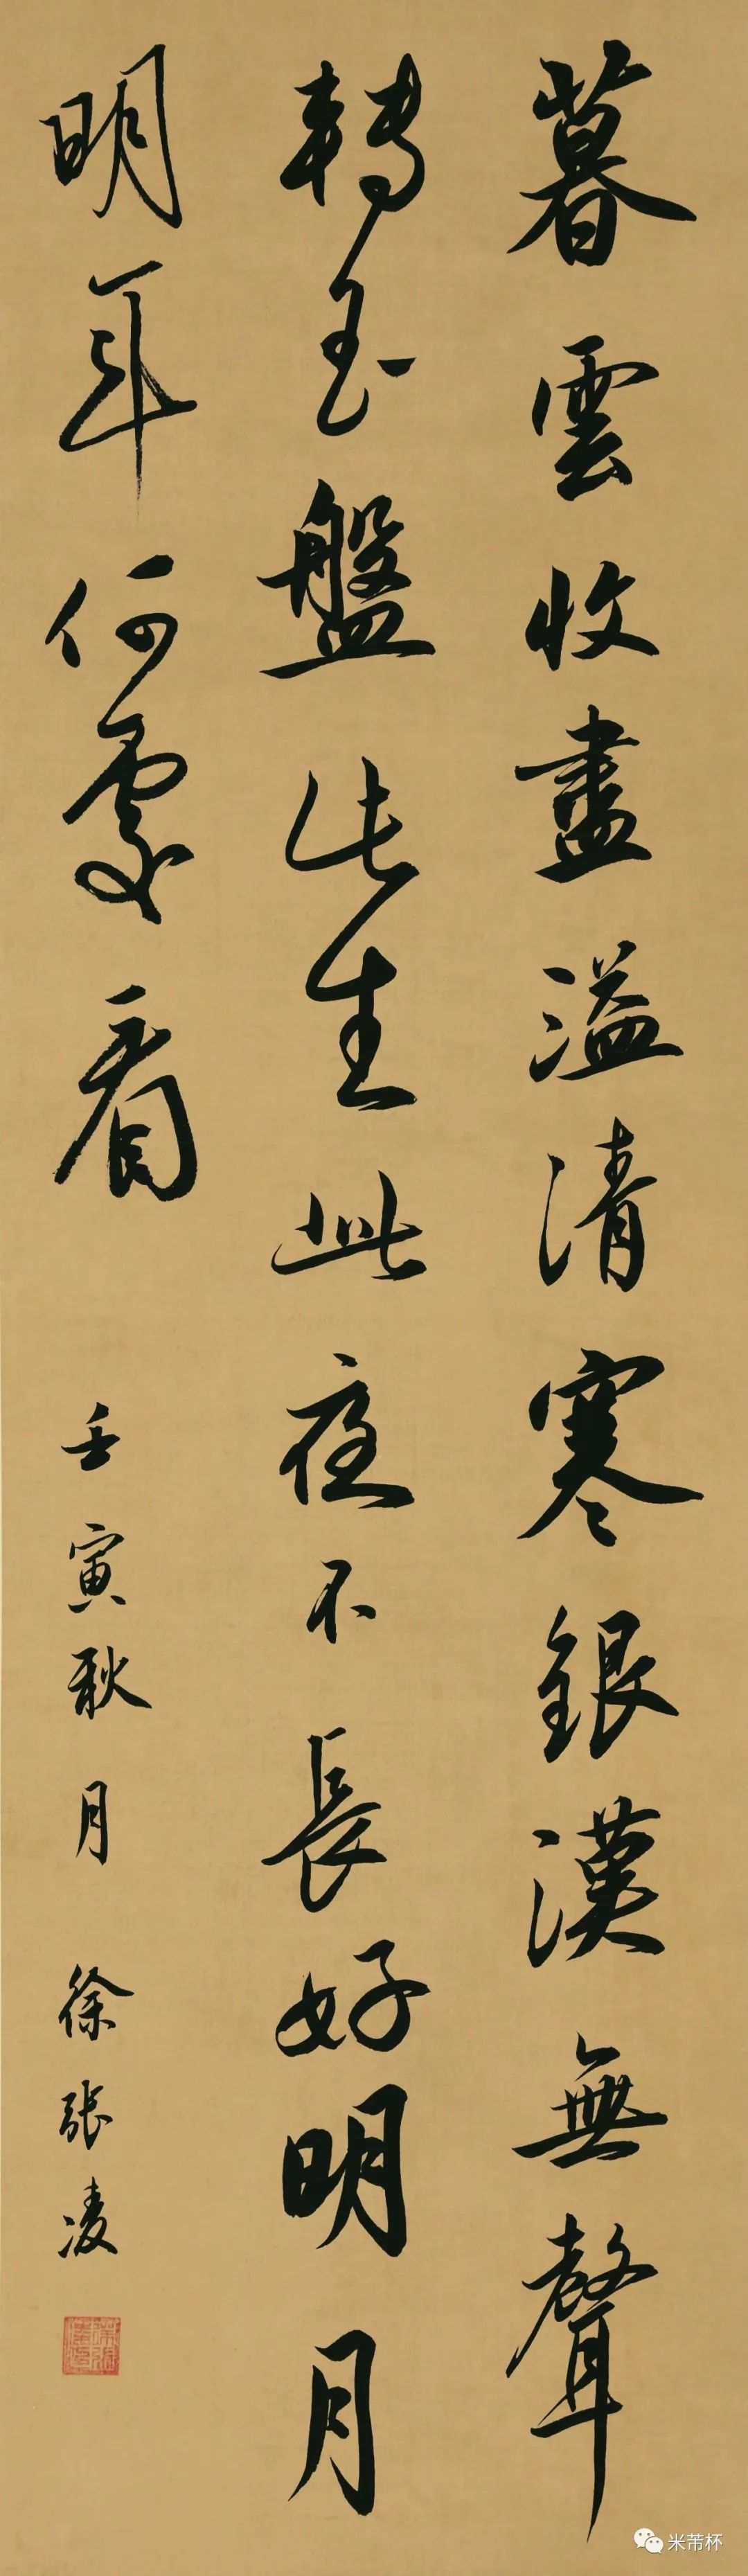 暮雲收盡溢清寒銀漢無聲
轉玉盤此生此夜不長好明月
明年何處看
壬寅秋月 徐張凌
米芾杯